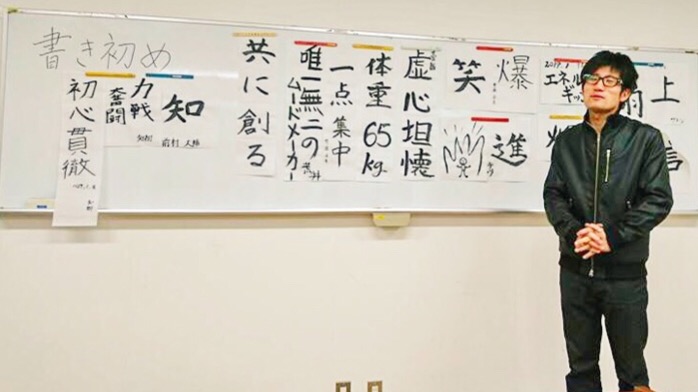 書き初め
初心貫徹
力戦
奮闘
知
共に創る
唯一無二の
ムードメーカー
一点集中
体重65kg.
虚心坦懐
笑
爆
進
エネル
ギッ
上
信